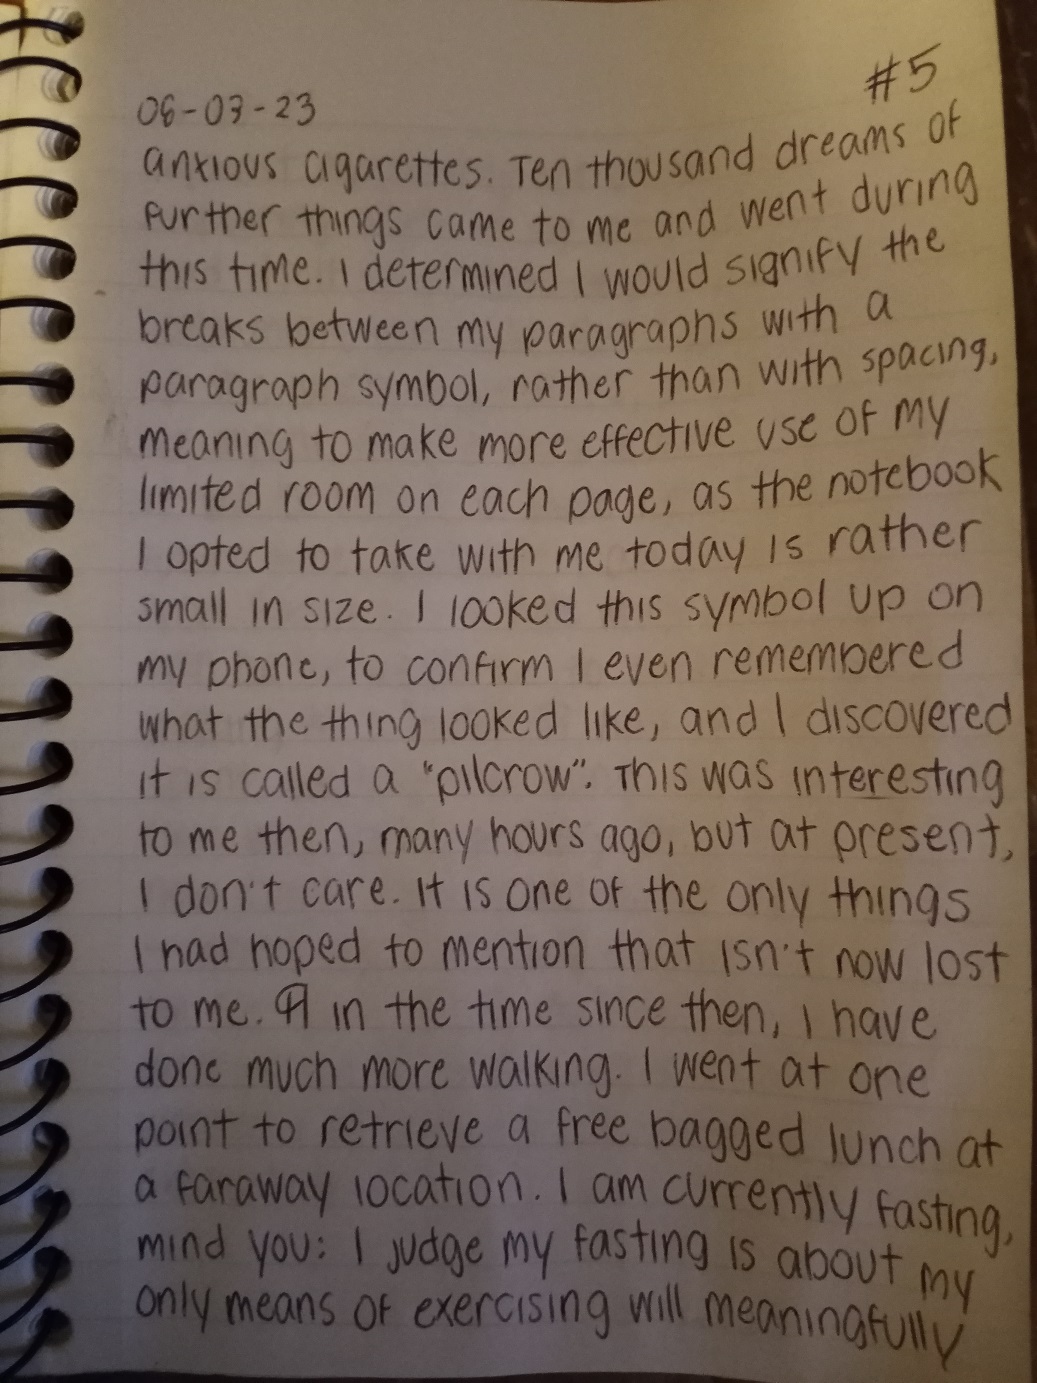 #5
06-03-23
anxious cigarettes. Ten thousand dreams of
further things came to me and went during
this time. I determined I would signify the
breaks between my paragraphs with a
paragraph symbol, rather than with spacing,
meaning to make more effective use of my
limited room on each page, as the notebook
I opted to take with me today is rather
small in size. I looked this symbol up on
my phone, to confirm I even remembered
what the thing looked like, and I discovered
it is called a "pilcrow". This was interesting
to me then, many hours ago, but at present,
I don't care. It is one of the only things
I had hoped to mention that isn't now lost
to me. ¶ in the time since then, I have
done much more walking. I went at one
point to retrieve a free bagged lunch at
a faraway location. I am currently fasting,
mind you: I judge my fasting is about my
only means of exercising will meaningfully